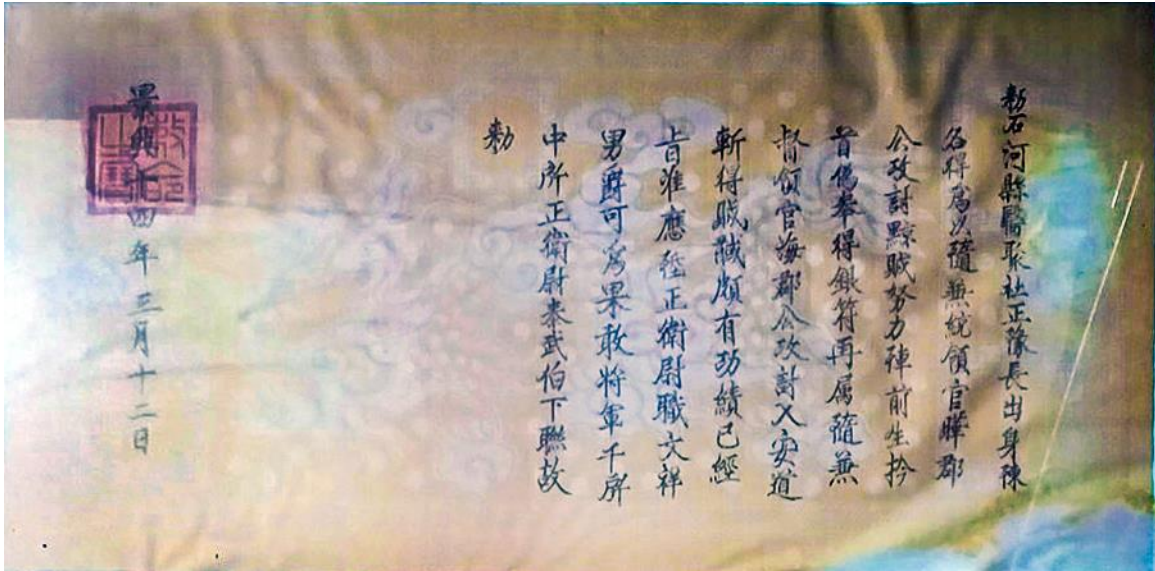 勅石河縣醫聚社正隊長出身陳
名得屬次隨兼統領官曄郡
公攻討黥賊努力陣前生扲
首偽奉得銀符再屬隨兼
督領官海郡公攻討入安道
斬得賊馘頗有功績已經
旨准應陞正衛尉職文祥
男爵可為果敢將軍千戶
中所正衛尉泰武伯下聯故
勅
景興十四年三月十二日
敕命之寶